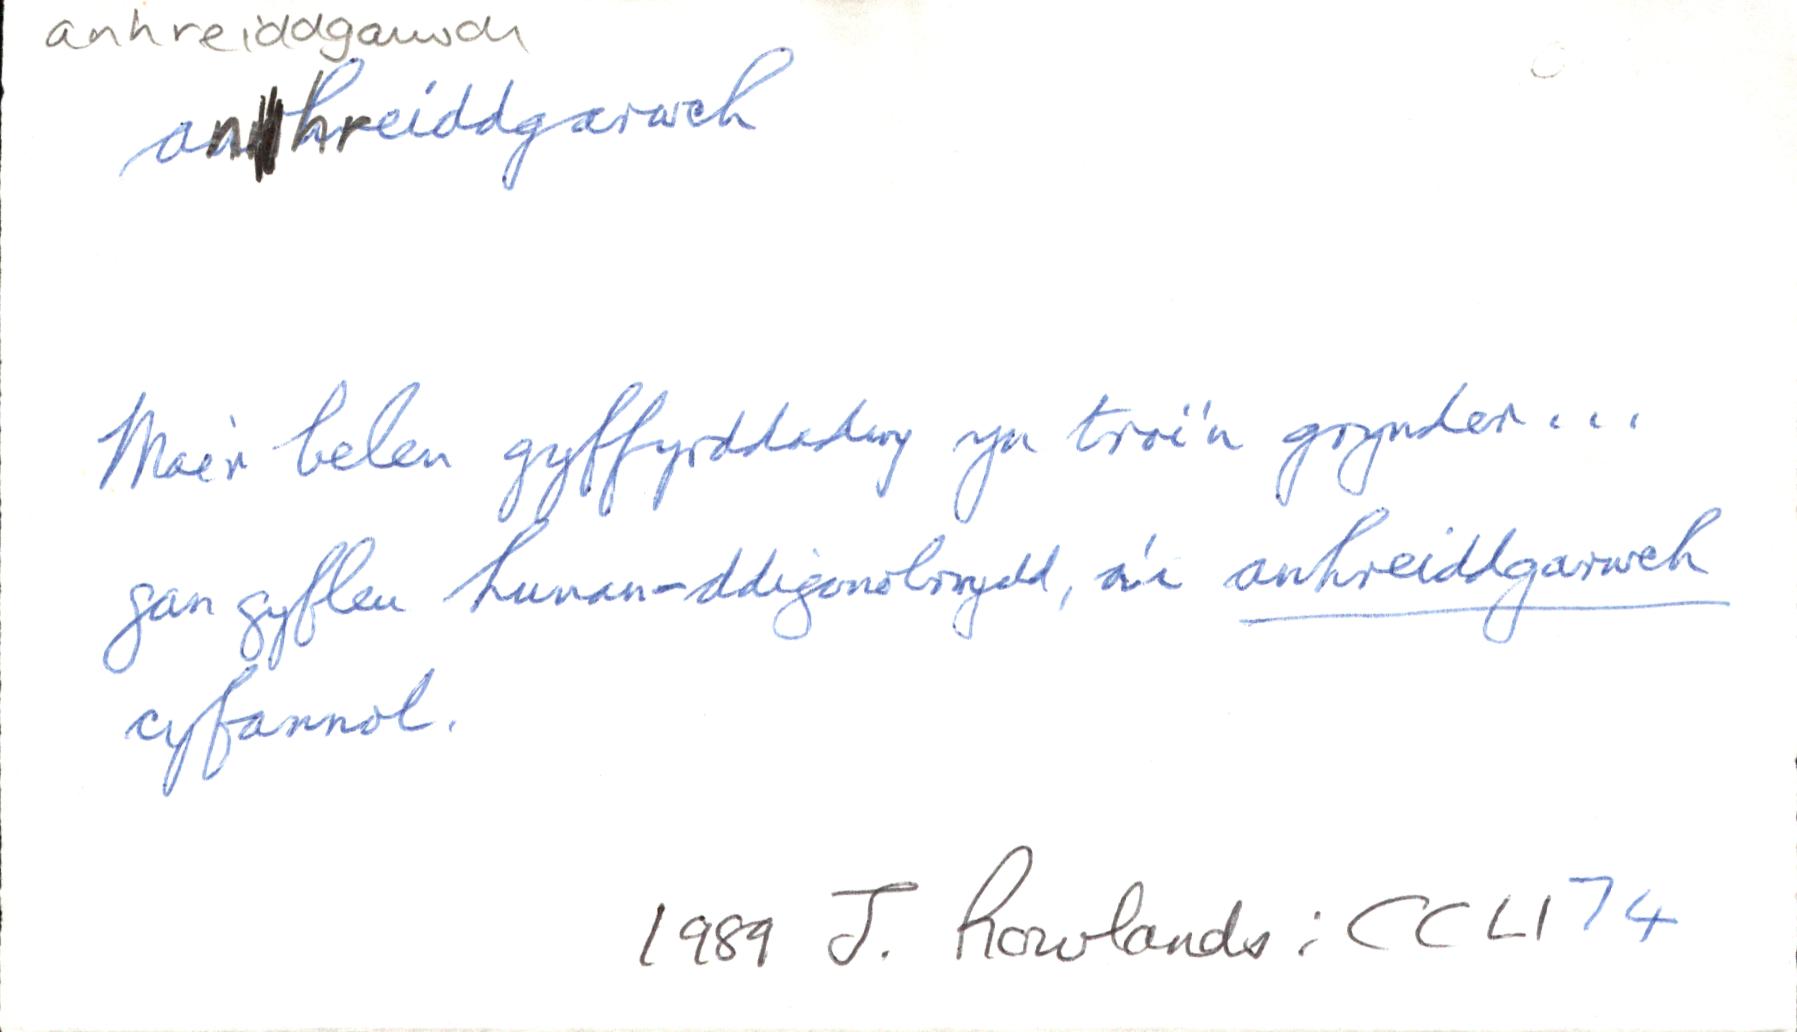 anhreiddgarwch
anhreiddgarwch
Mae'r belen gyffyrddadwy yn troi'n grynder...
gan gyfleu hunan-ddigonolrwydd, a'i anhreiddgarwch
cyfannol.
1989 J. Rowlands : CCLl 74